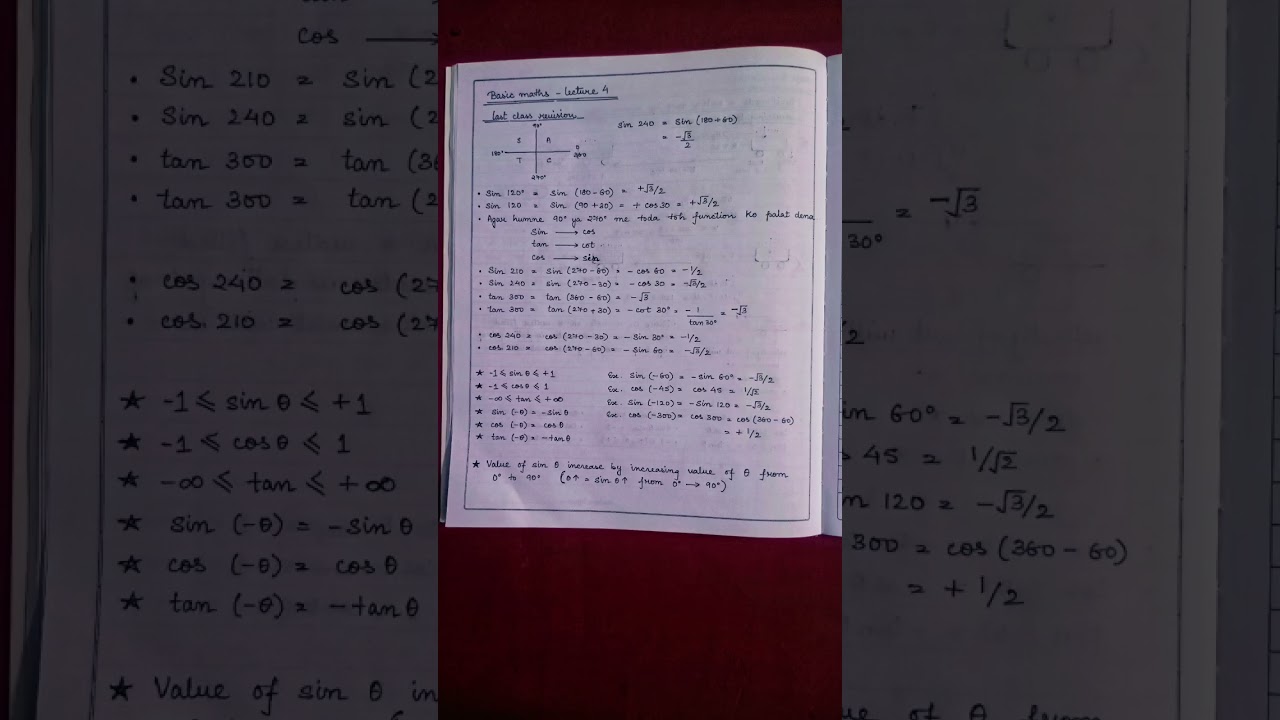 Basic maths - lecture 4
last class revision
90°
S A
180° 0
360
T C
270°
sin 240 = sin (180+60)
= -√3/2
• Sin 120° = sin (180-60) = +√3/2
• Sin 120 = Sin (90+30) = + cos30 = +√3/2
• Agar humne 90° ya 270° me toda toh function ko palat dena
Sin → cos
tan → cot
cos → sin
• Sin 210 = sin (270-60) = - cos 60 = -1/2
• Sin 240 = sin (270-30) = - cos 30 = -√3/2
• tan 300 = tan (360-60) = -√3
• tan 300 = tan (270+30) = - cot 30° = -1/tan 30° = -√3
• cos 240 = cos (270-30) = - Sin 30° = -1/2
• cos 210 = cos (270-60) = - Sin 60 = -√3/2
★ -1 ⩽ sin θ ⩽ +1 Ex. sin (-60) = -sin 60° = -√3/2
★ -1 ⩽ cosθ ⩽ 1 Ex. cos (-45) = cos 45 = 1/√2
★ -∞ ⩽ tan ⩽ +∞ Ex. Sin (-120) = -Sin 120 = -√3/2
★ sin (-θ) = -sinθ Ex. cos (-300) = cos 300 = cos (360-60)
★ cos (-θ) = cosθ = + 1/2
★ tan (-θ) = -tanθ
★ Value of sin θ increase by increasing value of θ from
0° to 90° (θ↑ = sin θ↑ from 0° → 90°)